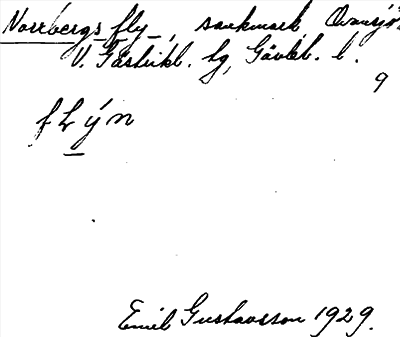 Norrbergs fly, sankmark, Ovansjö
V. Gästrikl. hg, Gävlb. l.
9
Emil Gustavsson 1929.